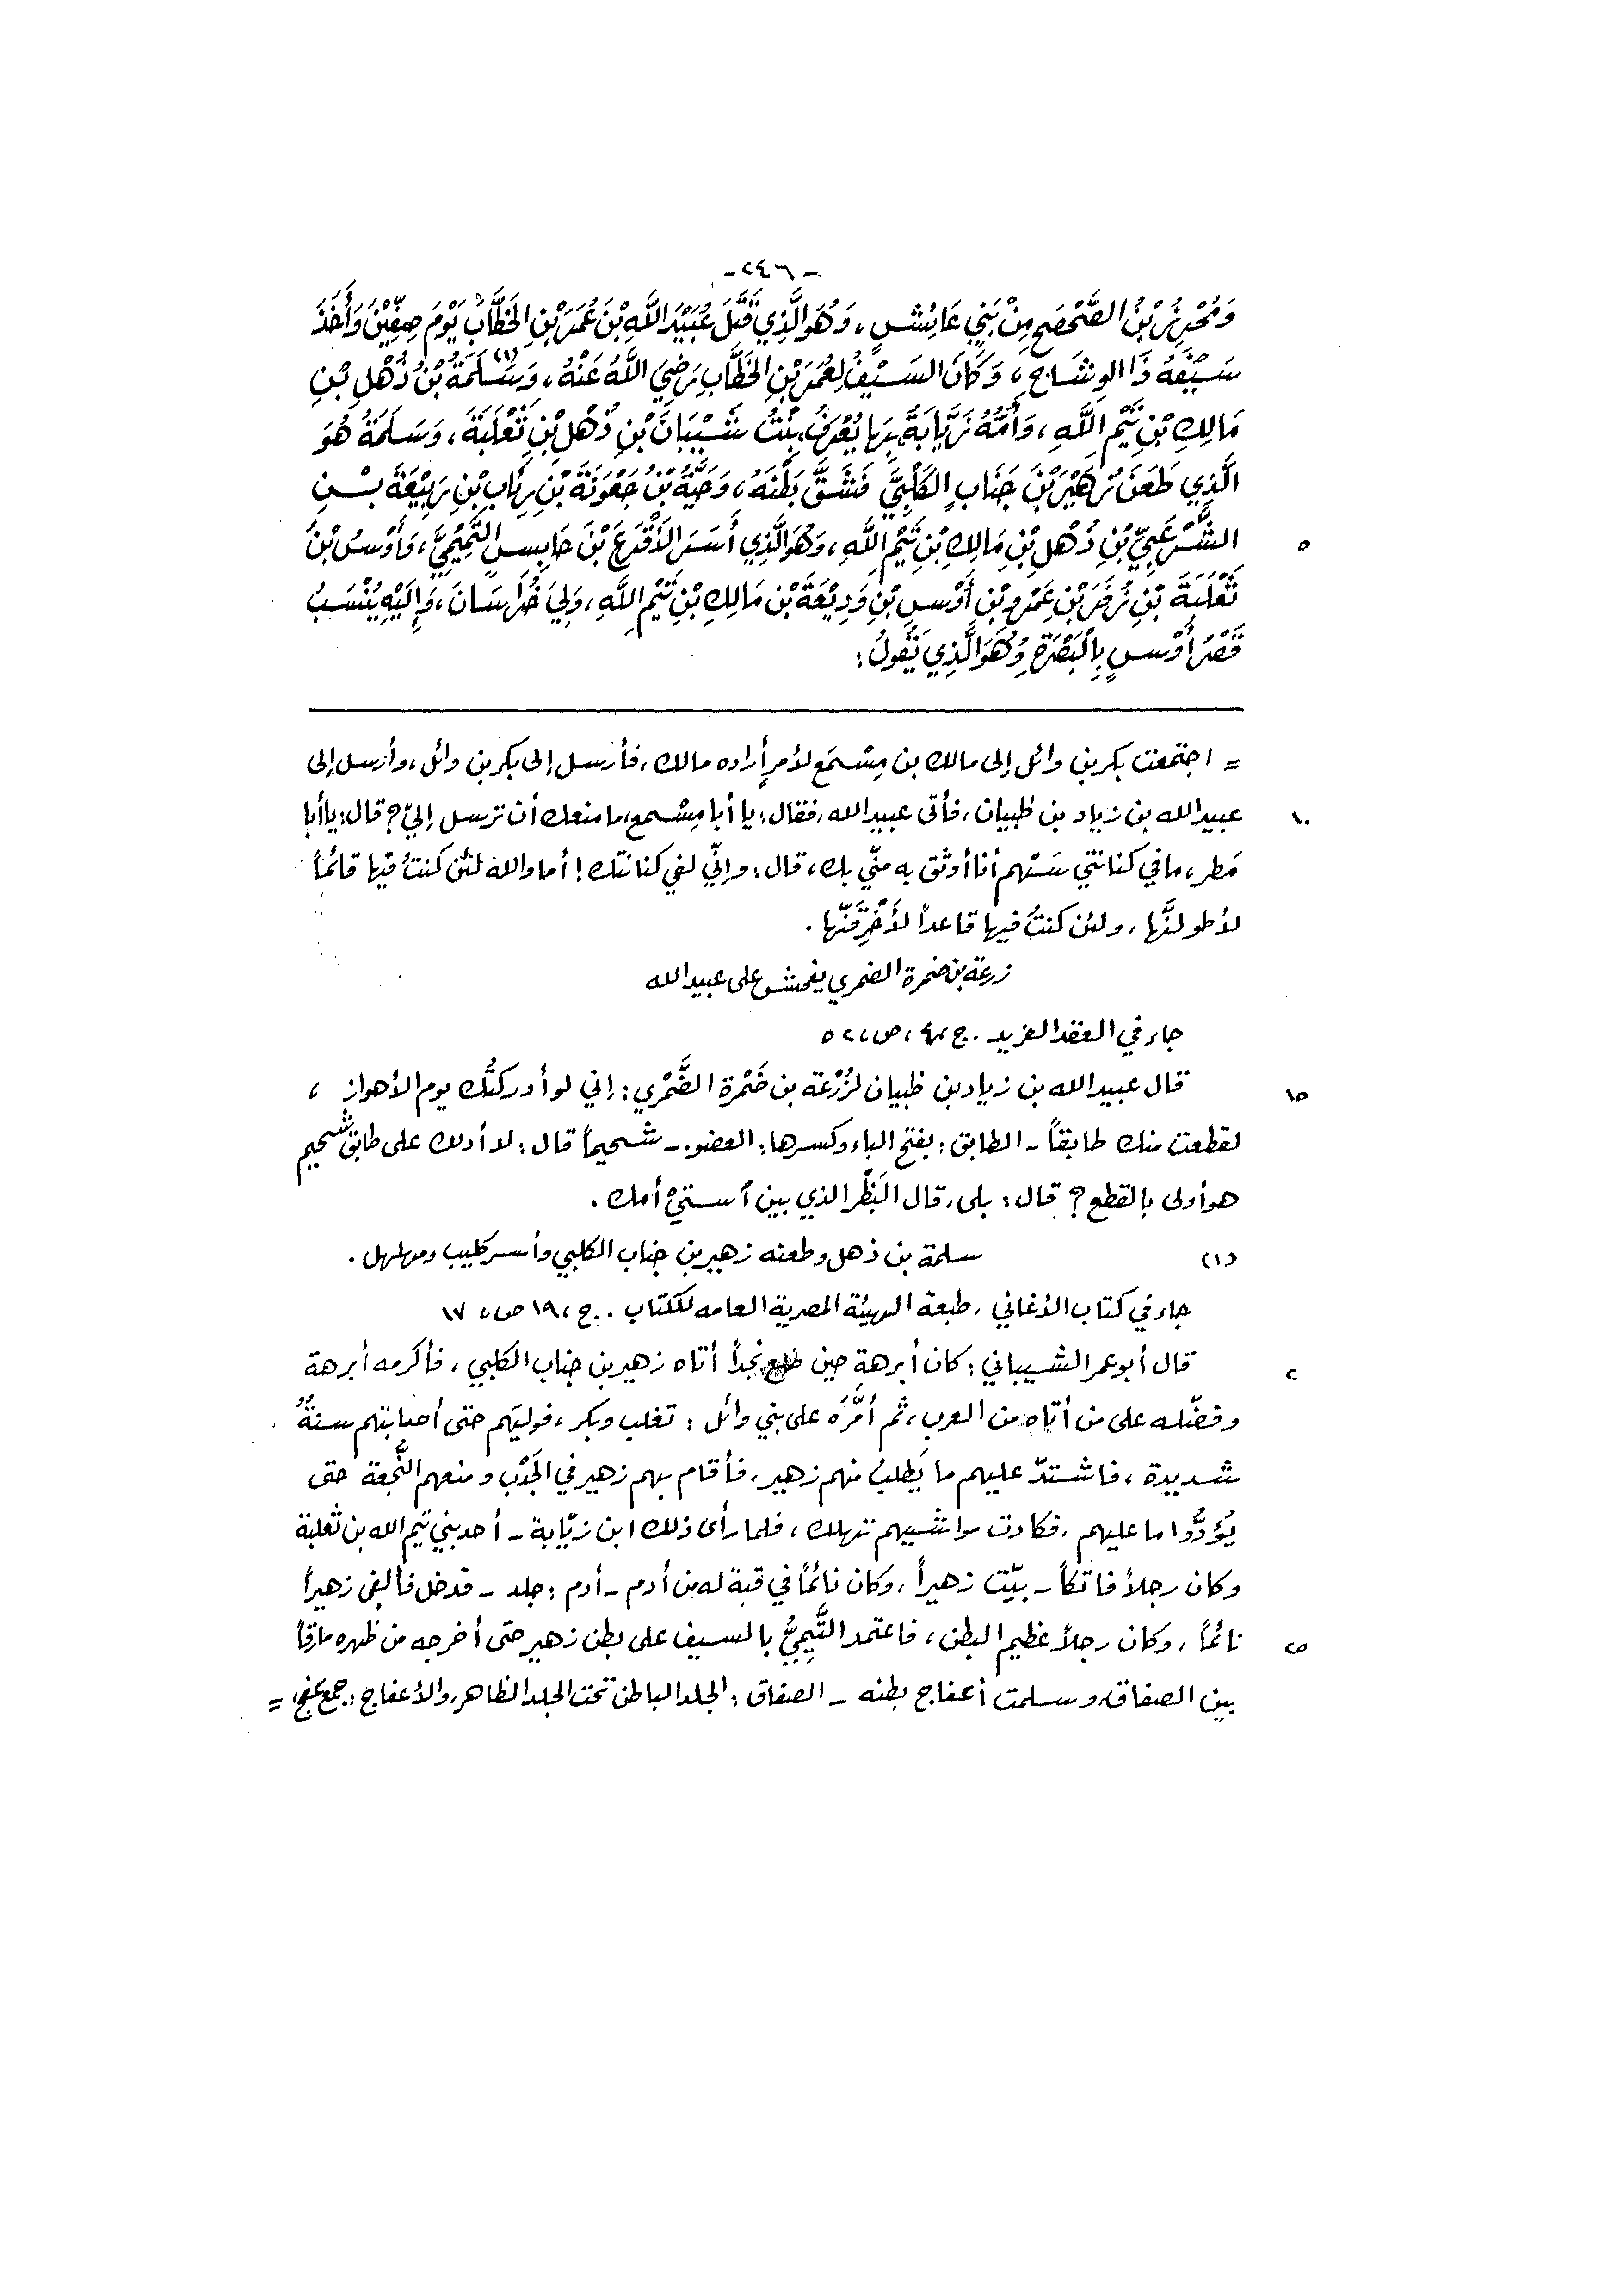 -٢٤٦-
وَمُحْرِزُ بْنُ الصَّحْصَحِ مِنْ بَنِي عَائِشٍ، وَهُوَ الَّذِي قَتَلَ عُبَيْدَ اللَّهِ بْنَ عُمَرَ بْنِ الخَطَّابِ يَوْمَ صِفِّيْنَ وَأَخَذَ
سَيْفَهُ ذَا الوِشَاحِ، وَكَانَ السَّيْفُ لِعُمَرَ بْنِ الخَطَّابِ رَضِيَ اللَّهُ عَنْهُ، وَسَلَمَةُ (١) بْنُ ذُهْلِ بْنِ
مَالِكِ بْنِ تَيْمِ اللَّهِ، وَأُمُّهُ زَيَّابَةُ، بِهَا يُعْرَفُ، بِنْتُ شَيْبَانَ بْنِ ذُهْلِ بْنِ ثَعْلَبَةَ، وَسَلَمَةُ هُوَ
الَّذِي طَعَنَ زُهَيْرَ بْنَ جَنَابٍ الكَلْبِيَّ فَشَقَّ بَطْنَهُ، وَحَيَّةُ بْنُ جَعْوَنَةَ بْنِ رِئَابِ بْنِ رَبِيْعَةَ بْنِ
٥ الشَّرْعَبِيِّ بْنِ ذُهْلِ بْنِ مَالِكِ بْنِ تَيْمِ اللَّهِ، وَهُوَ الَّذِي أَسَرَ الأَقْرَعَ بْنَ حَابِسٍ التَّمِيْمِيَّ، وَأَوْسُ بْنُ
ثَعْلَبَةَ بْنِ زُفَرَ بْنِ عَمْرِو بْنِ أَوْسِ بْنِ وَدِيْعَةَ بْنِ مَالِكِ بْنِ تَيْمِ اللَّهِ، وَلِيَ خُرَاسَانَ، وَإِلَيْهِ يُنْسَبُ
قَصْرُ أَوْسٍ بِالْبَصْرَةِ وَهُوَ الَّذِي يَقُولُ:
= اجتمعت بكر بن وائل إلى مالك بن مِسْمَع لأمرٍ أراده مالك، فأرسل إلى بكر بن وائل، وأرسل إلى
١٠ عبيد الله بن زياد بن ظبيان، فأتى عبيد الله، فقال: يا أبا مِسْمع، ما منعك أن ترسل إليّ؟ قال: يا أبا
مَطر، ما في كنانتي سَهْم أنا أوثق به منّي بك، قال: وإنّي لفي كنانتك! أما والله لئن كنتُ فيها قائماً
لأطولنَّها، ولئن كنتُ فيها قاعداً لأَخْرِقَنّها.
زرعة بن ضمرة الضمري يفحش على عبيد الله
جاء في العقد الفريد. ج٤، ص، ٥٢
١٥ قال عبيد الله بن زياد بن ظبيان لزُرْعة بن ضَمْرة الضَّمْري: إني لو أدركتُك يوم الأهواز،
لقطعت منك طابقاً - الطابق: بفتح الباء وكسرها: العضو. - شحيماً قال: لا أدلك على طابق شحيم
هو أولى بالقطع؟ قال: بلى، قال البَظْر الذي بين أستيْ أمك.
(١) سلمة بن ذهل وطعنه زهير بن جناب الكلبي وأسر كليب ومهلهل.
جاء في كتاب الأغاني، طبعة الهيئة المصرية العامه للكتاب.. ج، ١٩ ص، ١٧
٢ قال أبو عمر الشيباني: كان أبرهة حين طلع نجداً أتاه زهير بن جناب الكلبي، فأكرمه أبرهة
وفضّله على من أتاه من العرب، ثم أمَّرَه على بني وائل: تغلب وبكر، فوليَهم حتى أصابتهم سنةٌ
شديدة، فاشتدّ عليهم ما يَطلبُ منهم زهير، فأقام بهم زهير في الجَدْب ومنعهم النُّجعة حتى
يُؤدُّوا ما عليهم، فكادت مواشيهم تهلك، فلما رأى ذلك ابن زيّابة - أحد بني تيم الله بن ثعلبة
وكان رجلاً فاتكاً - بيّت زهيراً، وكان نائماً في قبة له من أدم - أدم: جلد - فدخل فألفى زهيراً
٢٥ نائماً، وكان رجلاً عظيم البطن، فاعتمد التَّيميُّ بالسيف على بطن زهير حتى أخرجه من ظهره مارقاً
بين الصفاق، وسلمت أعفاج بطنه - الصفاق: الجلد الباطن تحت الجلد الظاهر، والأعفاج: جمع عفج، =